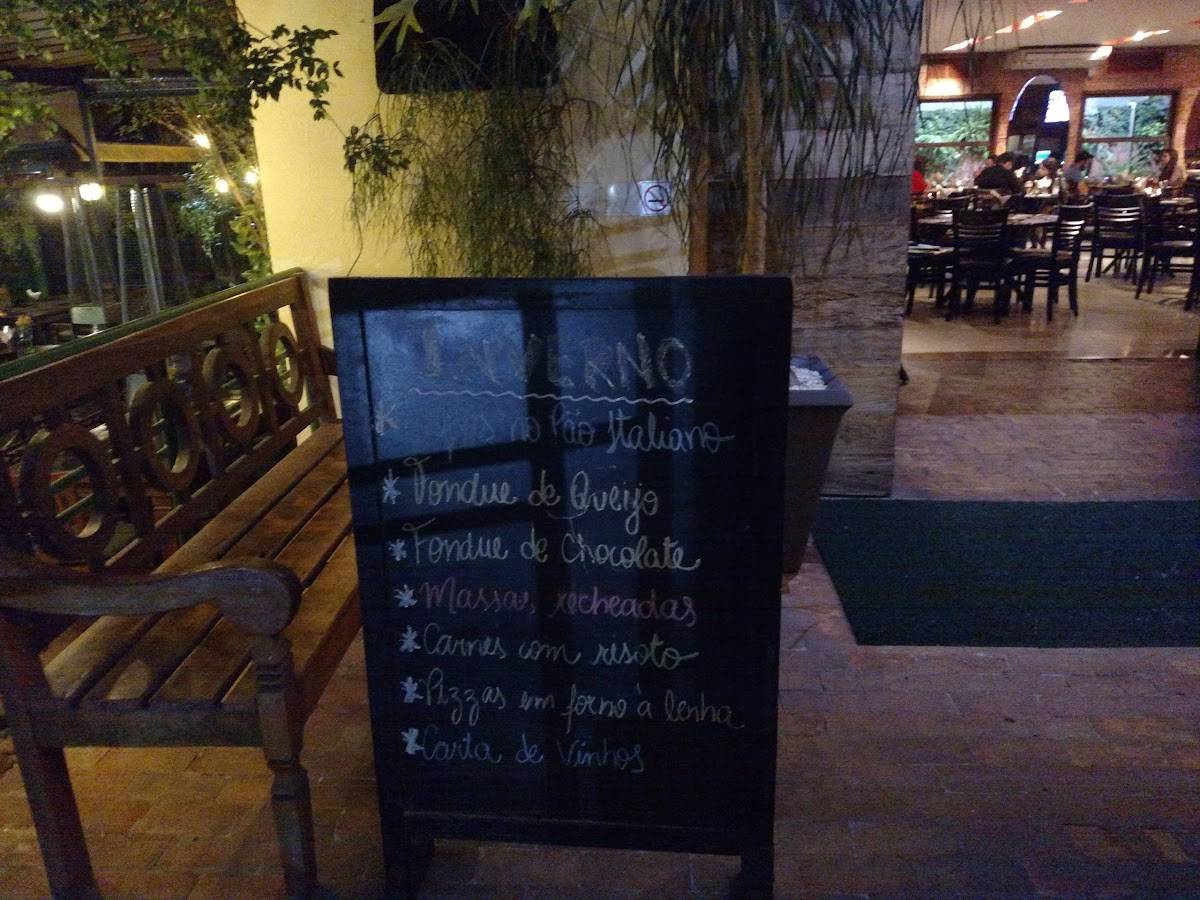 INVERNO
* no Pão Italiano
* Fondue de Queijo
* Fondue de Chocolate
* Massas recheadas
* Carnes com risoto
* Pizzas em forno à lenha
* Carta de Vinhos